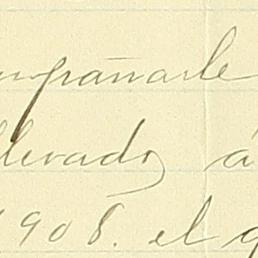 mpañarle
llevado á
1908. el q